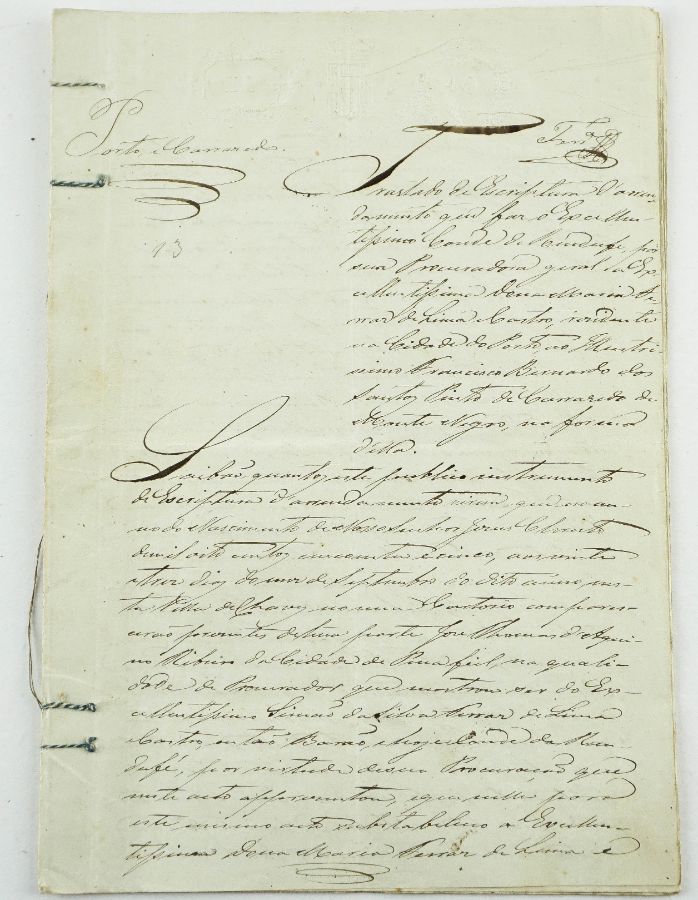 Porto e Carrazedo.
13
Traslado de Escriptura d'arren-
damento que faz o Excellen-
tissimo Conde de Rendufe por
sua Procuradora geral a Ex-
cellentissima Dona Maria Fer-
raz de Lima e Castro, rezidente
na Cidade do Porto, ao Illustris-
simo Francisco Bernardo dos
Santos Pinto de Carrazedo de
Monte Negro, na forma
della.
Saibão quantos este publico instrumento
de Escriptura d'arrendamento virem, que no an-
no do Nascimento de Nosso Senhor Jezus Christo
de mil oito centos cincoenta e cinco, aos vinte
e trez dias do mez de Septembro do dito anno, nes-
ta Villa de Chaves no meu Cartorio compares-
cerão prezentes de hua parte Joze Thomas d'Aqui-
no Ribeiro da Cidade de Penafiel, na quali-
dade de Procurador que mostrou ser do Ex-
cellentissimo Simão da Silva Ferraz de Lima
e Castro, então Barão, e hoje Conde da Ren-
dufe, por virtude de sua Procuração que
neste acto apprezentou, e que nella para
este mesmo acto substabeleceo a Excellen-
tissima Dona Maria Ferraz de Lima e